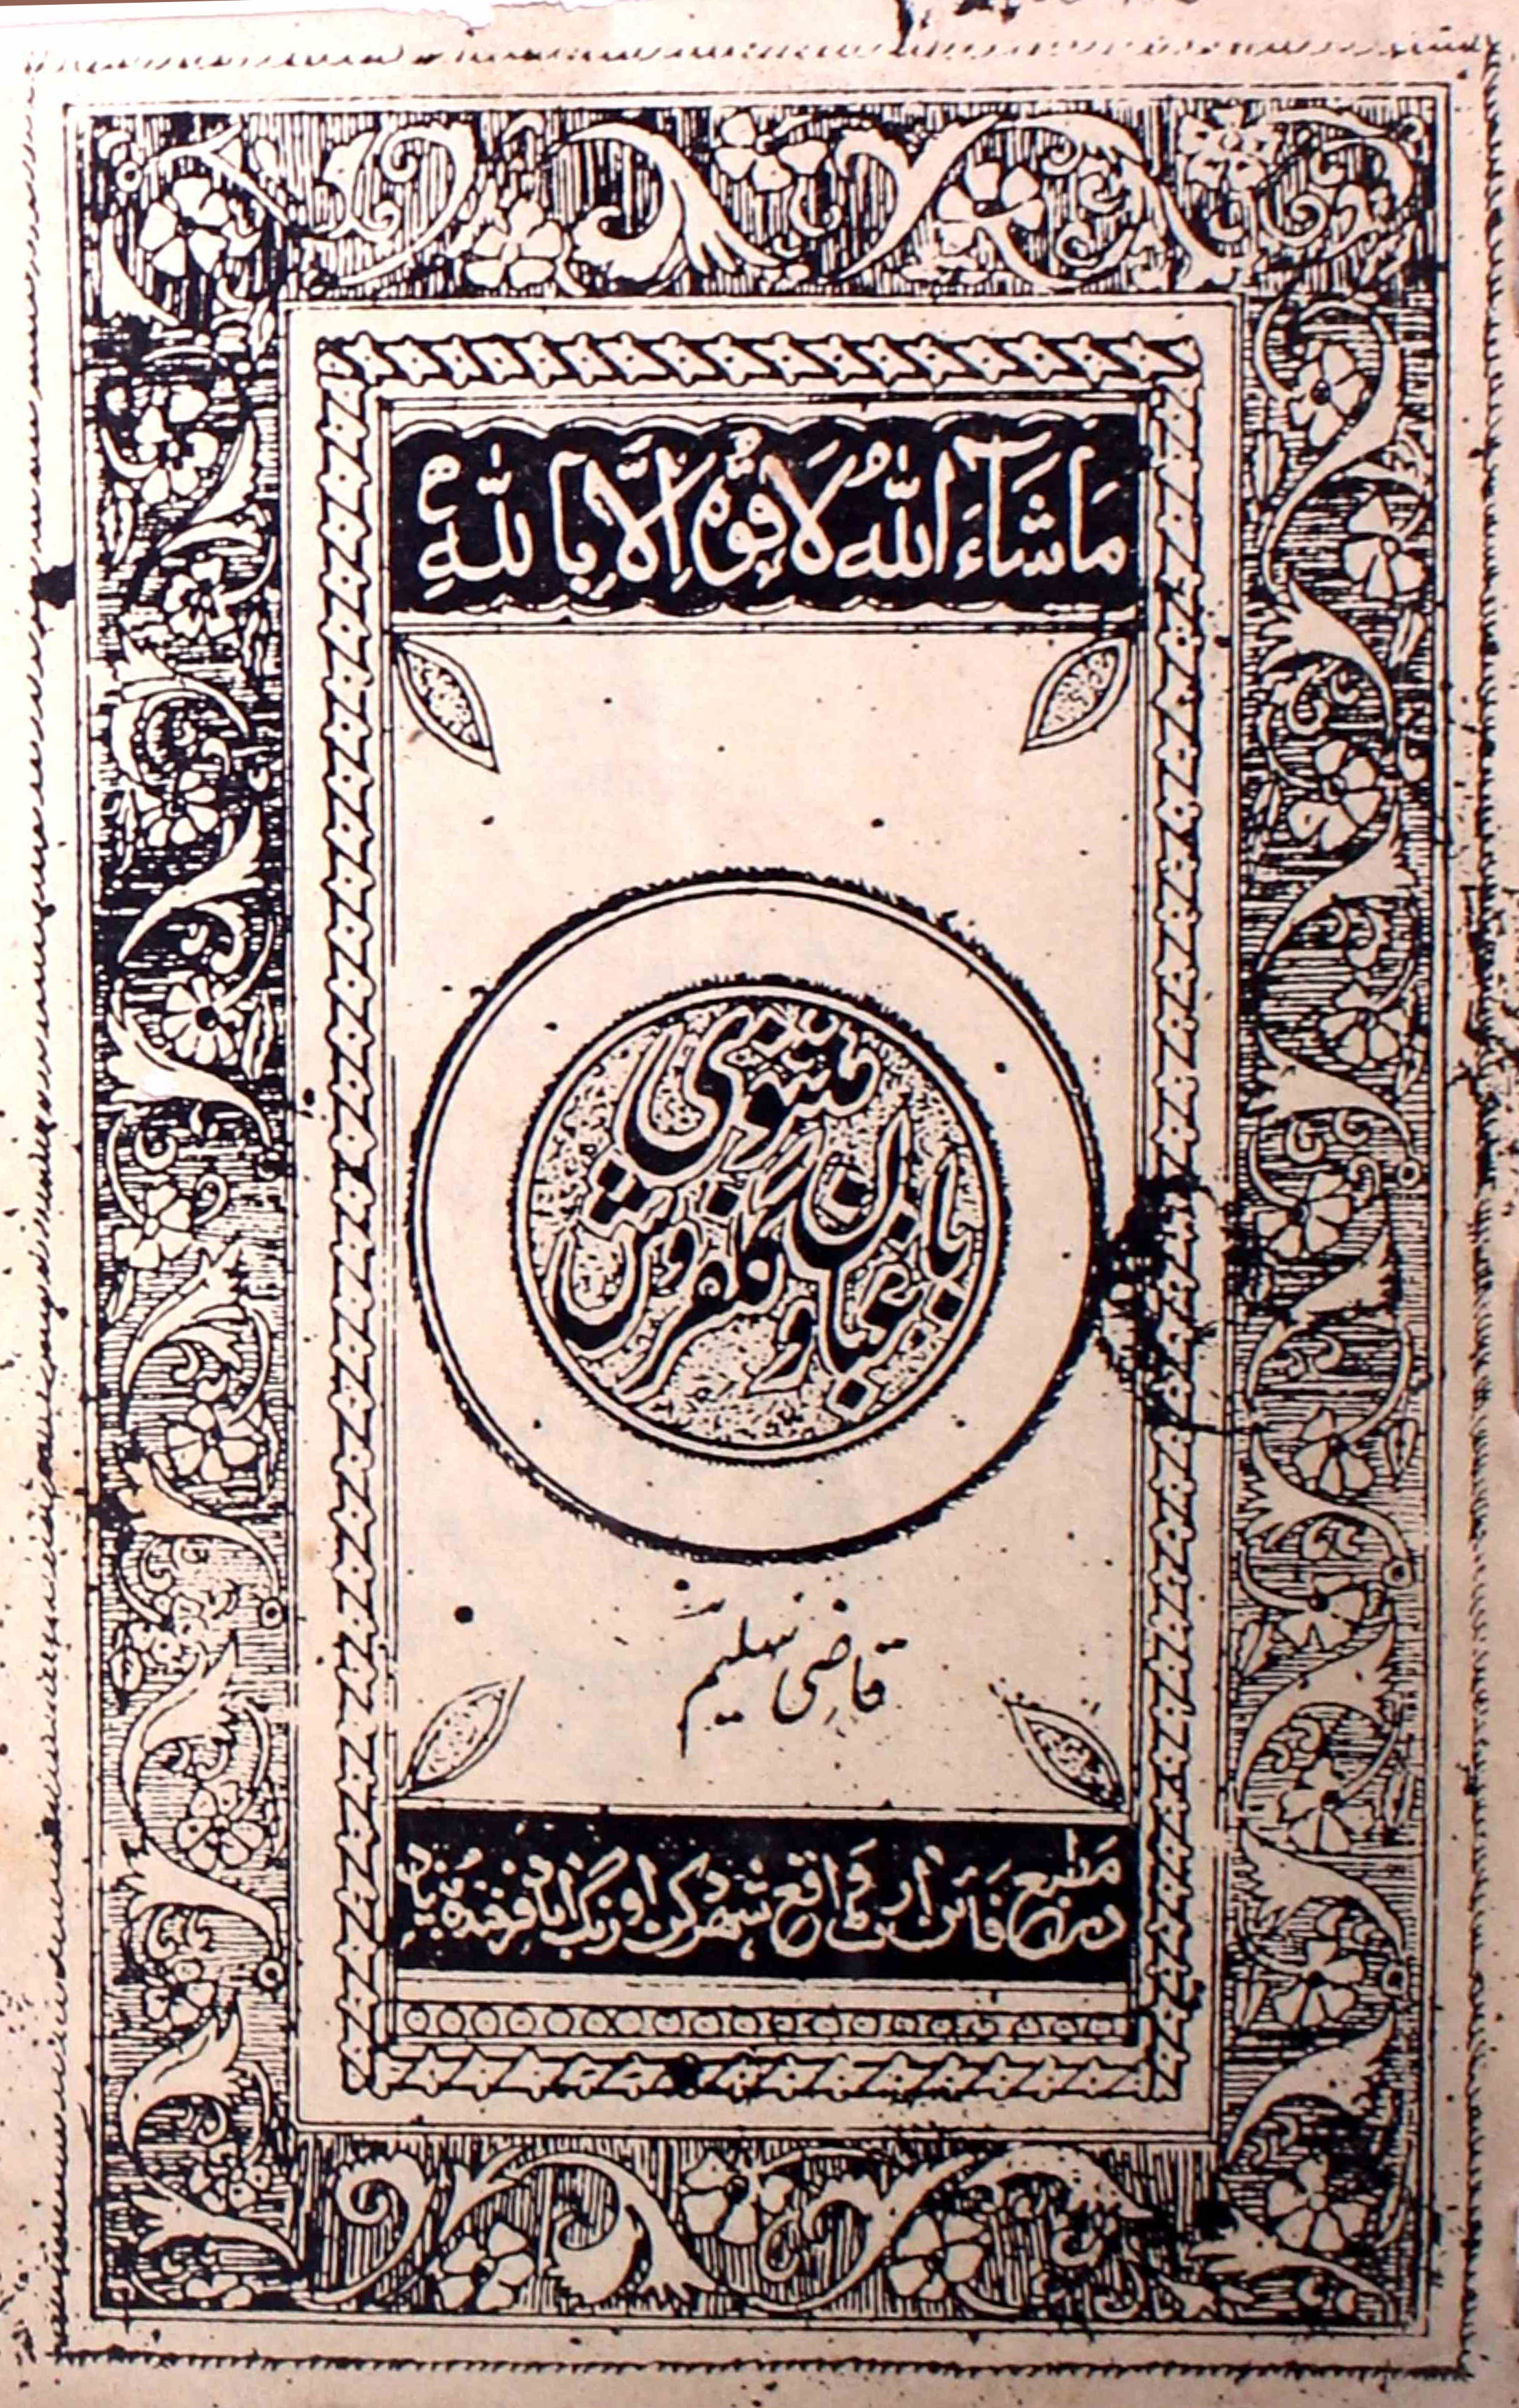 مَا شَآءَ اللّٰہُ لَا قُوَّۃَ اِلَّا بِاللّٰہِ
مثنوی
باغبان و گلفروش
قاضی سلیم
در مطبع فائن آرٹ واقع شہر دکن اورنگ آباد فرخندہ بنیاد